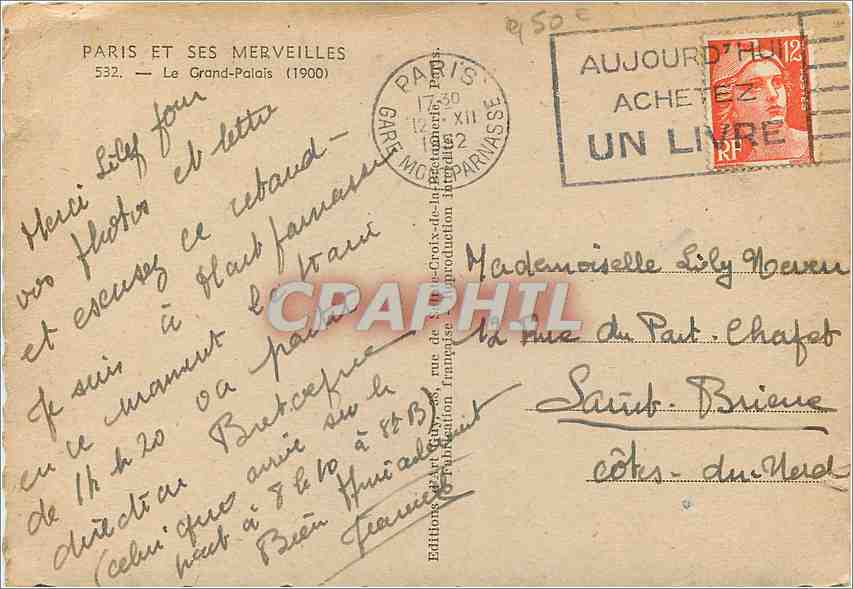 PARIS ET SES MERVEILLES
532. — Le Grand-Palais (1900)
Merci Lily pour
vos photos et lettre
et excusez ce retard -
Je suis à Mont parnasse
en ce moment le train
de 17 h 20 va partir
direction Bretagne
(celui qui arrive sur le
à 8 h 10 à
Bien Amicalement
Francis
Editions d'Art Guy, 38, rue de Sainte-Croix-de-la-Bretonnerie, Paris.
Fabrication française - Reproduction interdite.
9,50 €
PARIS
17 30
12 XII
1952
GARE MONTPARNASSE
AUJOURD'HUI
ACHETEZ
UN LIVRE
12F
POSTES
RF
Mademoiselle Lily Neven
12 Rue du Port-Chafet
Saint-Brieuc
Côtes-du-Nord
CRAPHIL